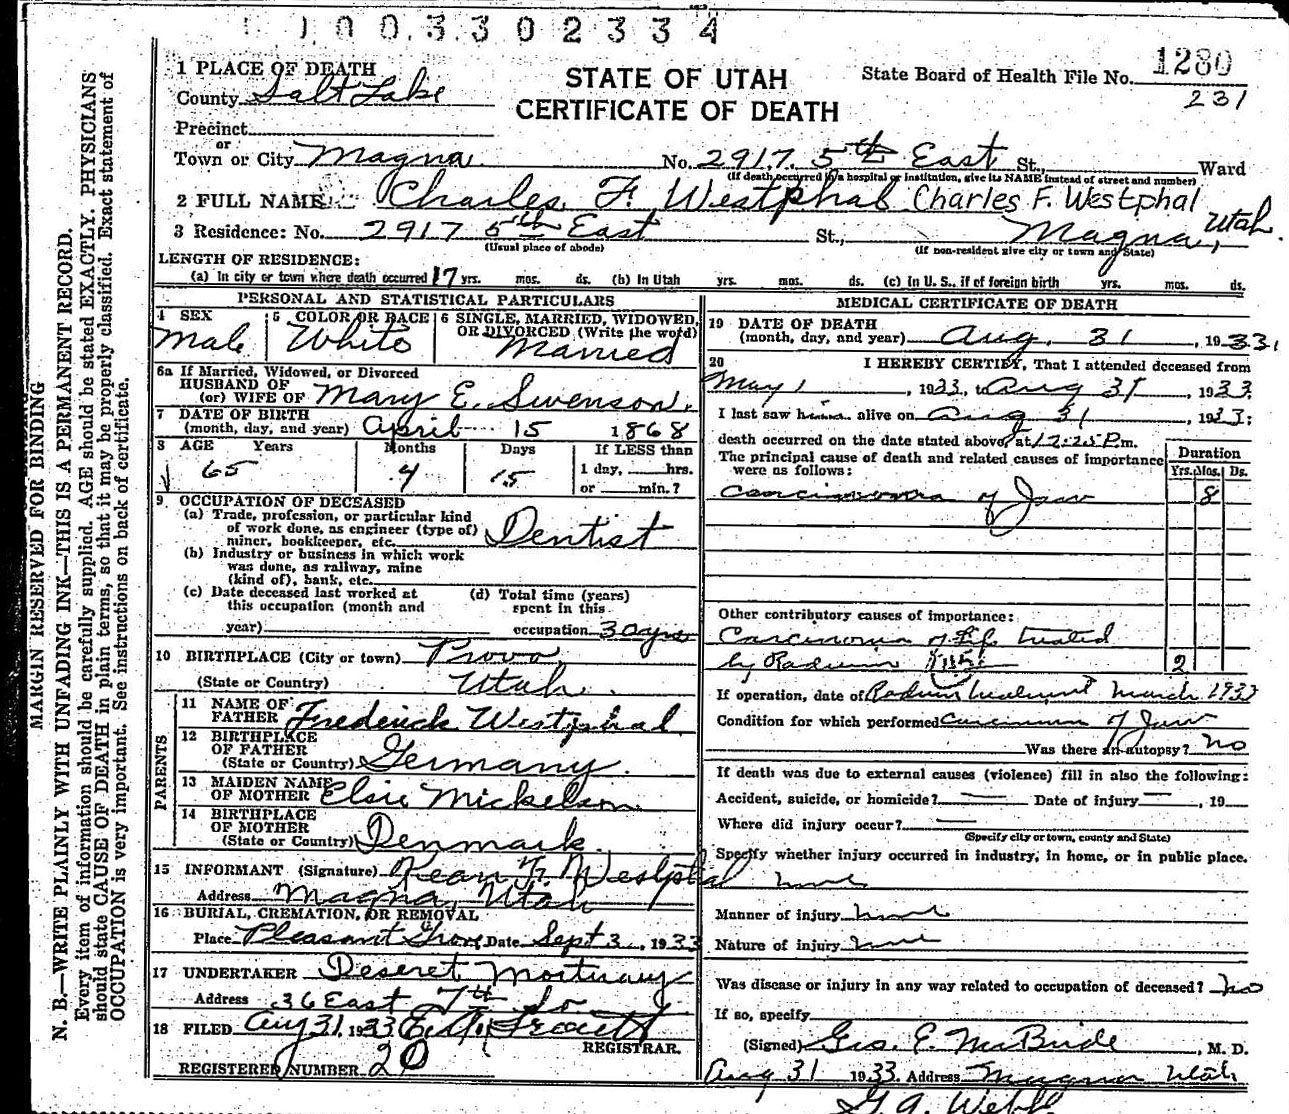 1003302334
1280
231
STATE OF UTAH
CERTIFICATE OF DEATH
State Board of Health File No.
1 PLACE OF DEATH
County Salt Lake
Precinct
or
Town or City Magna No. 2917 5th East St., Ward
(If death occurred in a hospital or institution, give its NAME instead of street and number)
2 FULL NAME Charles F. Westphal Charles F. Westphal
3 Residence: No. 2917 5th East St., Magna, Utah
(Usual place of abode) (If non-resident give city or town and State)
LENGTH OF RESIDENCE:
(a) In city or town where death occurred 17 yrs. mos. ds. (b) In Utah yrs. mos. ds. (c) In U. S., if of foreign birth yrs. mos. ds.
PERSONAL AND STATISTICAL PARTICULARS
4 SEX
Male
5 COLOR OR RACE
White
6 SINGLE, MARRIED, WIDOWED,
OR DIVORCED (Write the word)
Married
6a If Married, Widowed, or Divorced
HUSBAND OF
(or) WIFE OF Mary E. Swenson.
7 DATE OF BIRTH
(month, day, and year) April 15 1868
8 AGE Years Months Days If LESS than
65 4 15 1 day, hrs.
or min.?
9 OCCUPATION OF DECEASED
(a) Trade, profession, or particular kind
of work done, as engineer (type of)
miner, bookkeeper, etc. Dentist
(b) Industry or business in which work
was done, as railway, mine
(kind of), bank, etc.
(c) Date deceased last worked at
this occupation (month and
year)
(d) Total time (years)
spent in this
occupation 30 yrs
10 BIRTHPLACE (City or town) Provo
(State or Country) Utah.
PARENTS
11 NAME OF
FATHER Frederick Westphal
12 BIRTHPLACE
OF FATHER
(State or Country) Germany.
13 MAIDEN NAME
OF MOTHER Elsie Mickelson
14 BIRTHPLACE
OF MOTHER
(State or Country) Denmark.
15 INFORMANT (Signature) Westphal
Address Magna, Utah
16 BURIAL, CREMATION, OR REMOVAL
Place Pleasant Grove Date Sept 3, 1933
17 UNDERTAKER Deseret Mortuary
Address 36 East 7th So
18 FILED Aug 31, 1933
REGISTRAR.
REGISTERED NUMBER 20
MEDICAL CERTIFICATE OF DEATH
19 DATE OF DEATH
(month, day, and year) Aug. 31, 1933.
20 I HEREBY CERTIFY, That I attended deceased from
May 1, 1933, to Aug 31, 1933.
I last saw him alive on Aug 31, 1933;
death occurred on the date stated above at 12:25 P.m.
The principal cause of death and related causes of importance
were as follows:
Duration
Yrs. Mos. Ds.
Carcinoma of Jaw 8
Other contributory causes of importance:
Carcinoma of Lip treated
by Radium 2
If operation, date of Radium treatment March 1933
Condition for which performed Carcinoma of Jaw
Was there an autopsy? no
If death was due to external causes (violence) fill in also the following:
Accident, suicide, or homicide? Date of injury , 19
Where did injury occur?
(Specify city or town, county and State)
Specify whether injury occurred in industry, in home, or in public place.
none
Manner of injury none
Nature of injury none
Was disease or injury in any way related to occupation of deceased? no
If so, specify
(Signed) Geo. E. McBride, M. D.
Aug 31 1933. Address Magna Utah
G. A. Webb
MARGIN RESERVED FOR BINDING
N. B.—WRITE PLAINLY WITH UNFADING INK—THIS IS A PERMANENT RECORD.
Every item of information should be carefully supplied. AGE should be stated EXACTLY. PHYSICIANS
should state CAUSE OF DEATH in plain terms, so that it may be properly classified. Exact statement of
OCCUPATION is very important. See instructions on back of certificate.